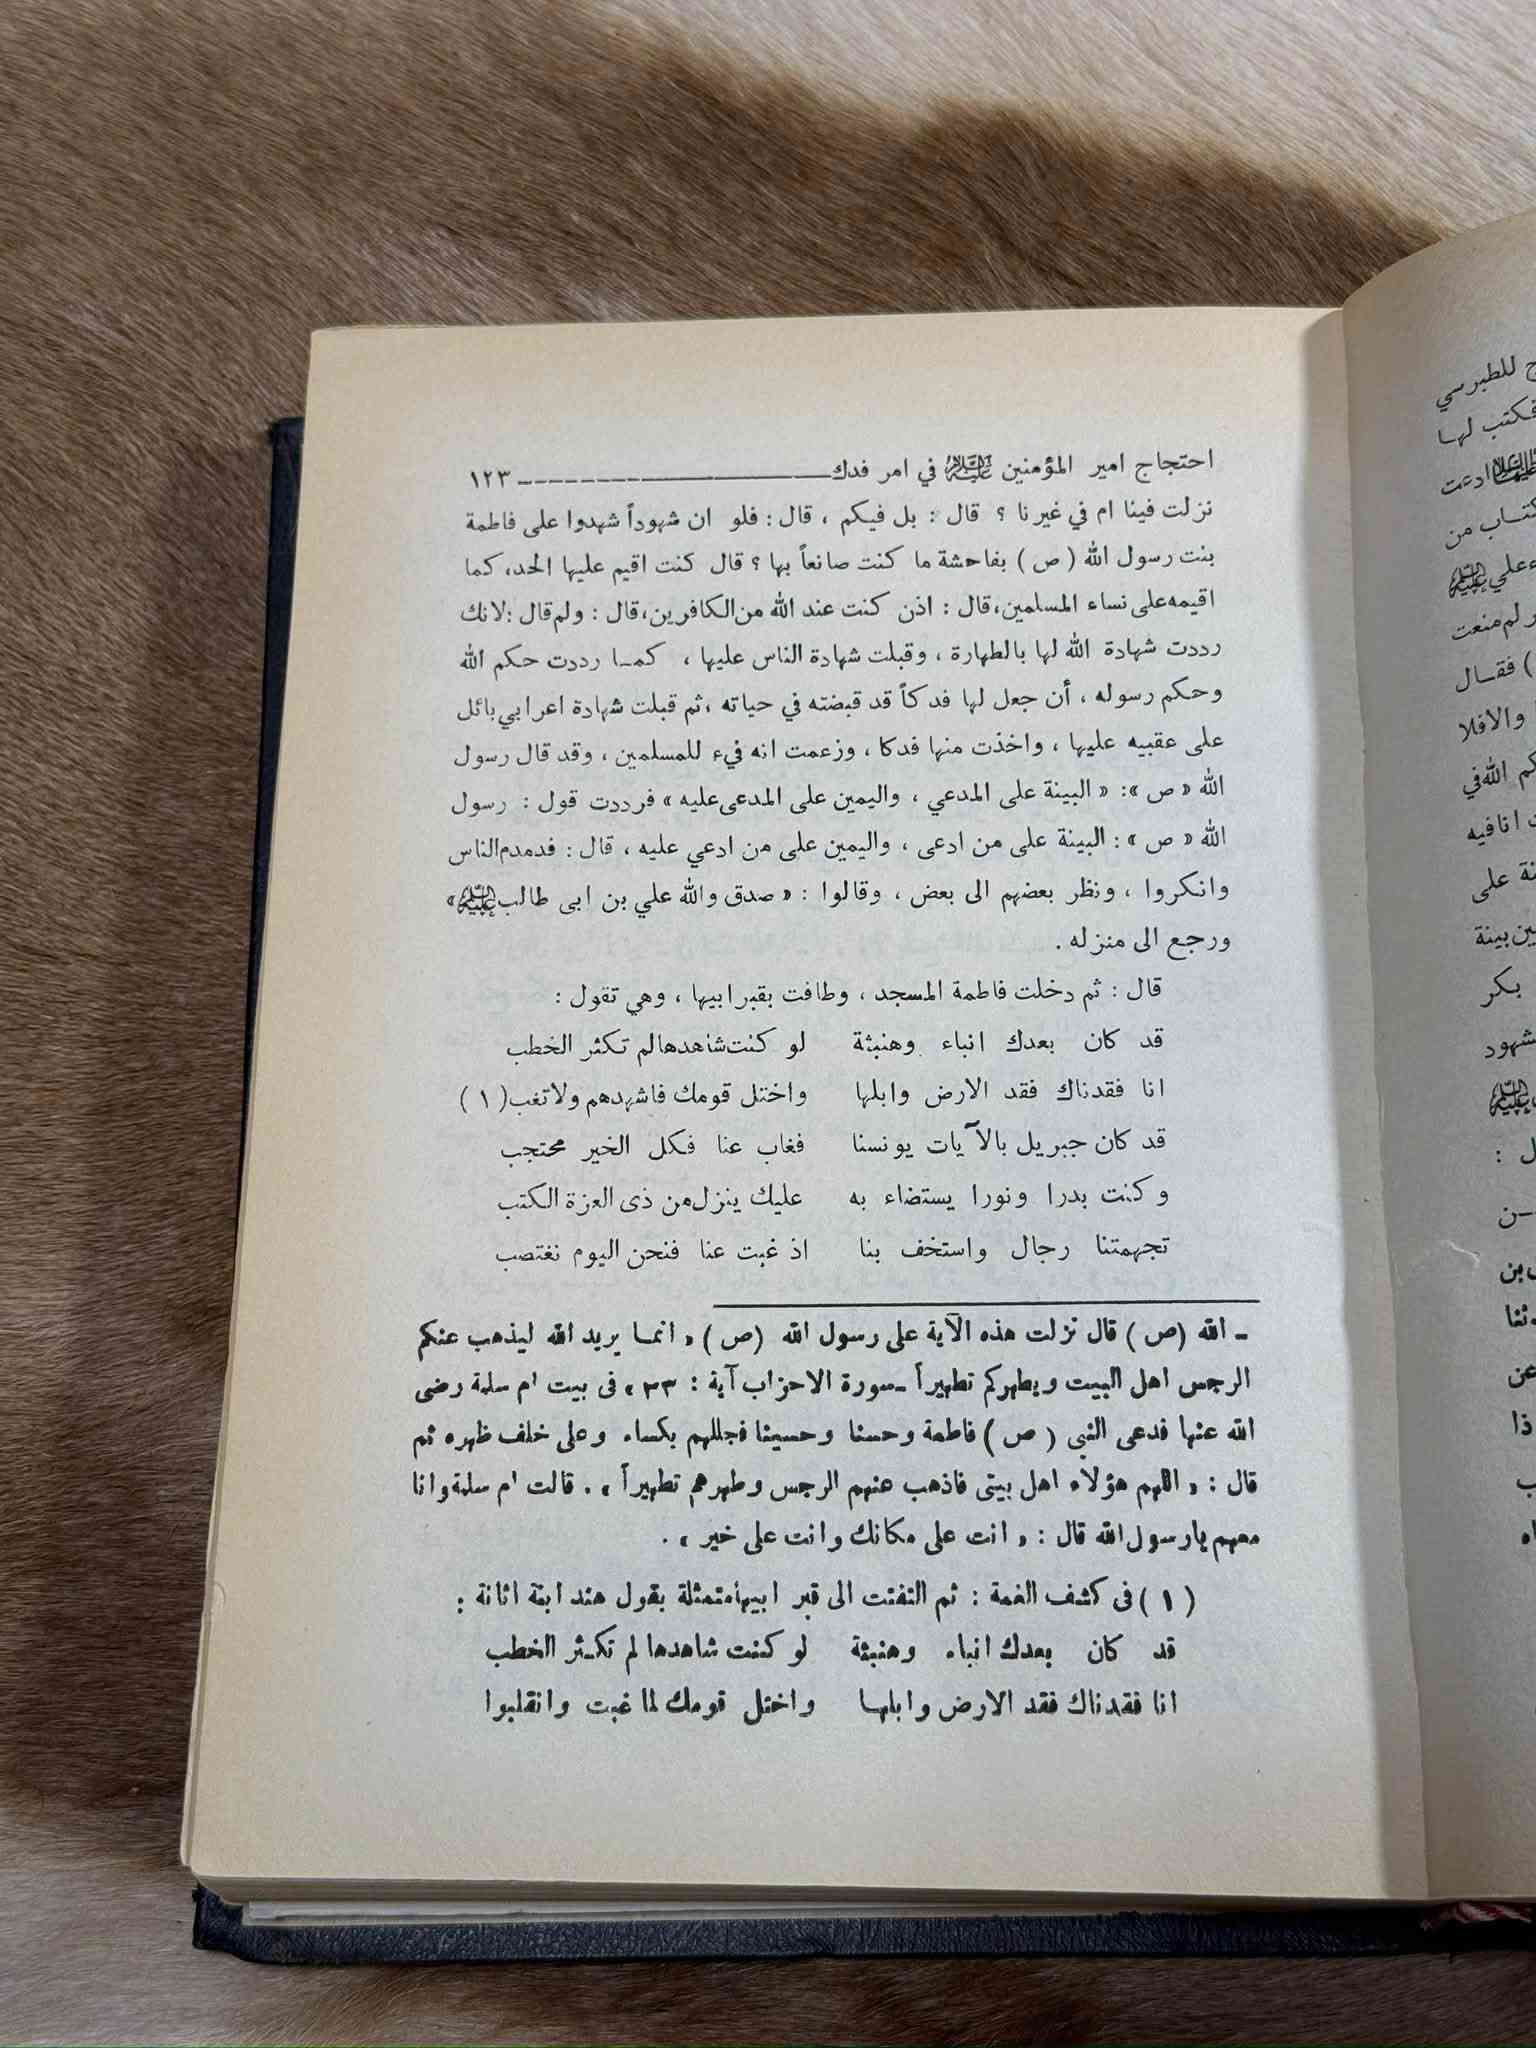 احتجاج امير المؤمنين عليه السلام في امر فدك ـــــــــــــــــ ١٢٣
نزلت فينا ام في غيرنا ؟ قال : بل فيكم ، قال : فلو ان شهوداً شهدوا على فاطمة
بنت رسول الله ( ص ) بفاحشة ما كنت صانعاً بها ؟ قال كنت اقيم عليها الحد، كما
اقيمه على نساء المسلمين، قال : اذن كنت عند الله من الكافرين، قال : ولم قال : لانك
رددت شهادة الله لها بالطهارة ، وقبلت شهادة الناس عليها ، كمـا رددت حكم الله
وحكم رسوله ، أن جعل لها فدكاً قد قبضته في حياته ، ثم قبلت شهادة اعرابي بائل
على عقبيه عليها ، واخذت منها فدكا ، وزعمت انه فيء للمسلمين ، وقد قال رسول
الله « ص »: « البينة على المدعي ، واليمين على المدعى عليه » فرددت قول : رسول
الله « ص » : البينة على من ادعى ، واليمين على من ادعي عليه ، قال : فدمدم الناس
وانكروا ، ونظر بعضهم الى بعض ، وقالوا : « صدق والله علي بن ابى طالب عليه السلام »
ورجع الى منزله .
قال : ثم دخلت فاطمة المسجد ، وطافت بقبر ابيها ، وهي تقول :
قد كان بعدك انباء وهنبثة لو كنت شاهدها لم تكثر الخطب
انا فقدناك فقد الارض وابلها واختل قومك فاشهدهم ولا تغب ( ١ )
قد كان جبريل بالآيات يونسنا فغاب عنا فكل الخير محتجب
وكنت بدرا ونورا يستضاء به عليك ينزل من ذى العزة الكتب
تجهمتنا رجال واستخف بنا اذ غبت عنا فنحن اليوم نغتصب
ـ الله (ص ) قال نزلت هذه الآية على رسول الله (ص) « انمـا يريد الله ليذهب عنكم
الرجس اهل البيت ويطهركم تطهيراً ـ سورة الاحزاب آية : ٣٣ » فى بيت ام سلمة رضى
الله عنها فدعى النبى ( ص ) فاطمة وحسنا وحسينا فجللهم بكساء وعلى خلف ظهره ثم
قال : « اللهم هؤلاء اهل بيتى فاذهب عنهم الرجس وطهرهم تطهيراً » . قالت ام سلمة وانا
معهم يا رسول الله قال : « انت على مكانك وانت على خير » .
( ١ ) فى كشف الغمة : ثم التفتت الى قبر ابيها متمثلة بقول هند ابنة اثانة :
قد كان بعدك انباء وهنبثة لو كنت شاهدها لم تكـثر الخطب
انا فقدناك فقد الارض وابلهـا واختل قومك لما غبت وانقلبوا
ج للطبرسي
فكتب لهـا
ادعت
كتـاب من
لم منعت
) فقـال
والافلا
كم الله في
انا فيه
نة على
ين بينة
بكر
شهود
ل :